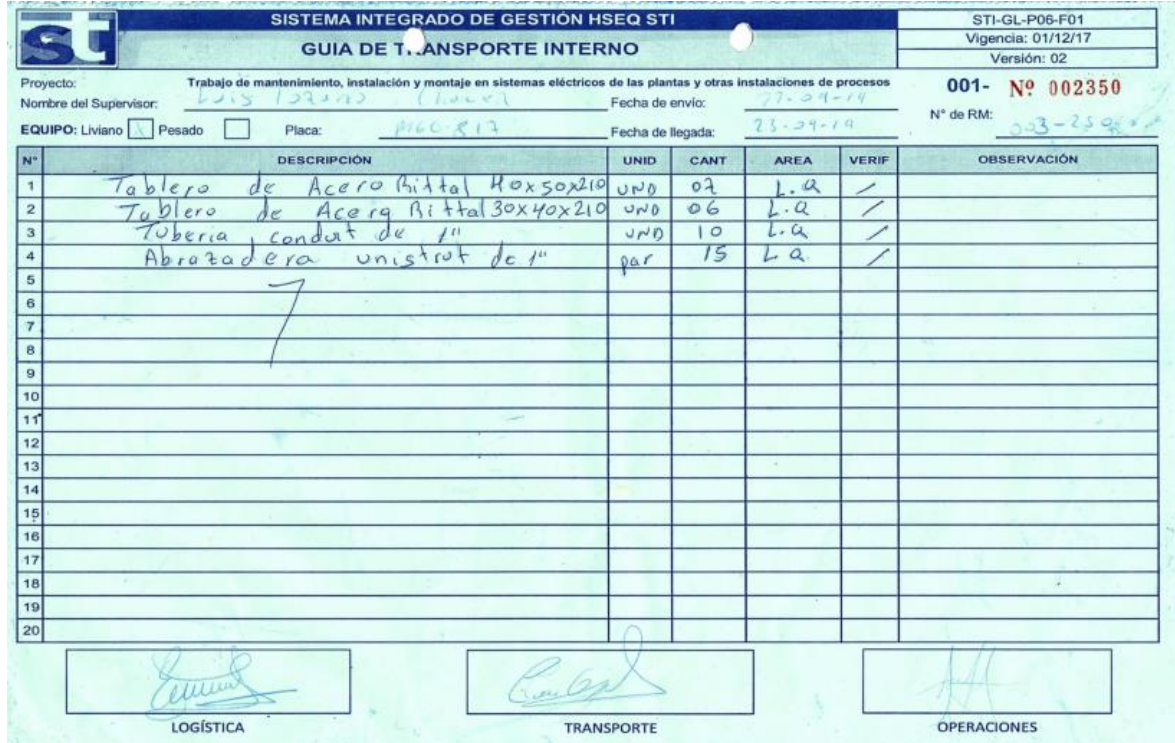 st
SISTEMA INTEGRADO DE GESTIÓN HSEQ STI
GUIA DE TRANSPORTE INTERNO
STI-GL-P06-F01
Vigencia: 01/12/17
Versión: 02
Proyecto: Trabajo de mantenimiento, instalación y montaje en sistemas eléctricos de las plantas y otras instalaciones de procesos
001- Nº 002350
Nombre del Supervisor: Luis Fecha de envío:
N° de RM:
EQUIPO: Liviano X Pesado Placa: Fecha de llegada:
N° DESCRIPCIÓN UNID CANT AREA VERIF OBSERVACIÓN
1 Tablero de Acero Rittal 40x50x210 UND L.a /
2 Tablero de Acero Rittal 30x40x210 UND 06 L.a /
3 Tuberia conduit de 1" UND 10 L.a /
4 Abrazadera unistrut de 1" par 15 L.a /
5
6
7
8
9
10
11
12
13
14
15
16
17
18
19
20
LOGÍSTICA TRANSPORTE OPERACIONES